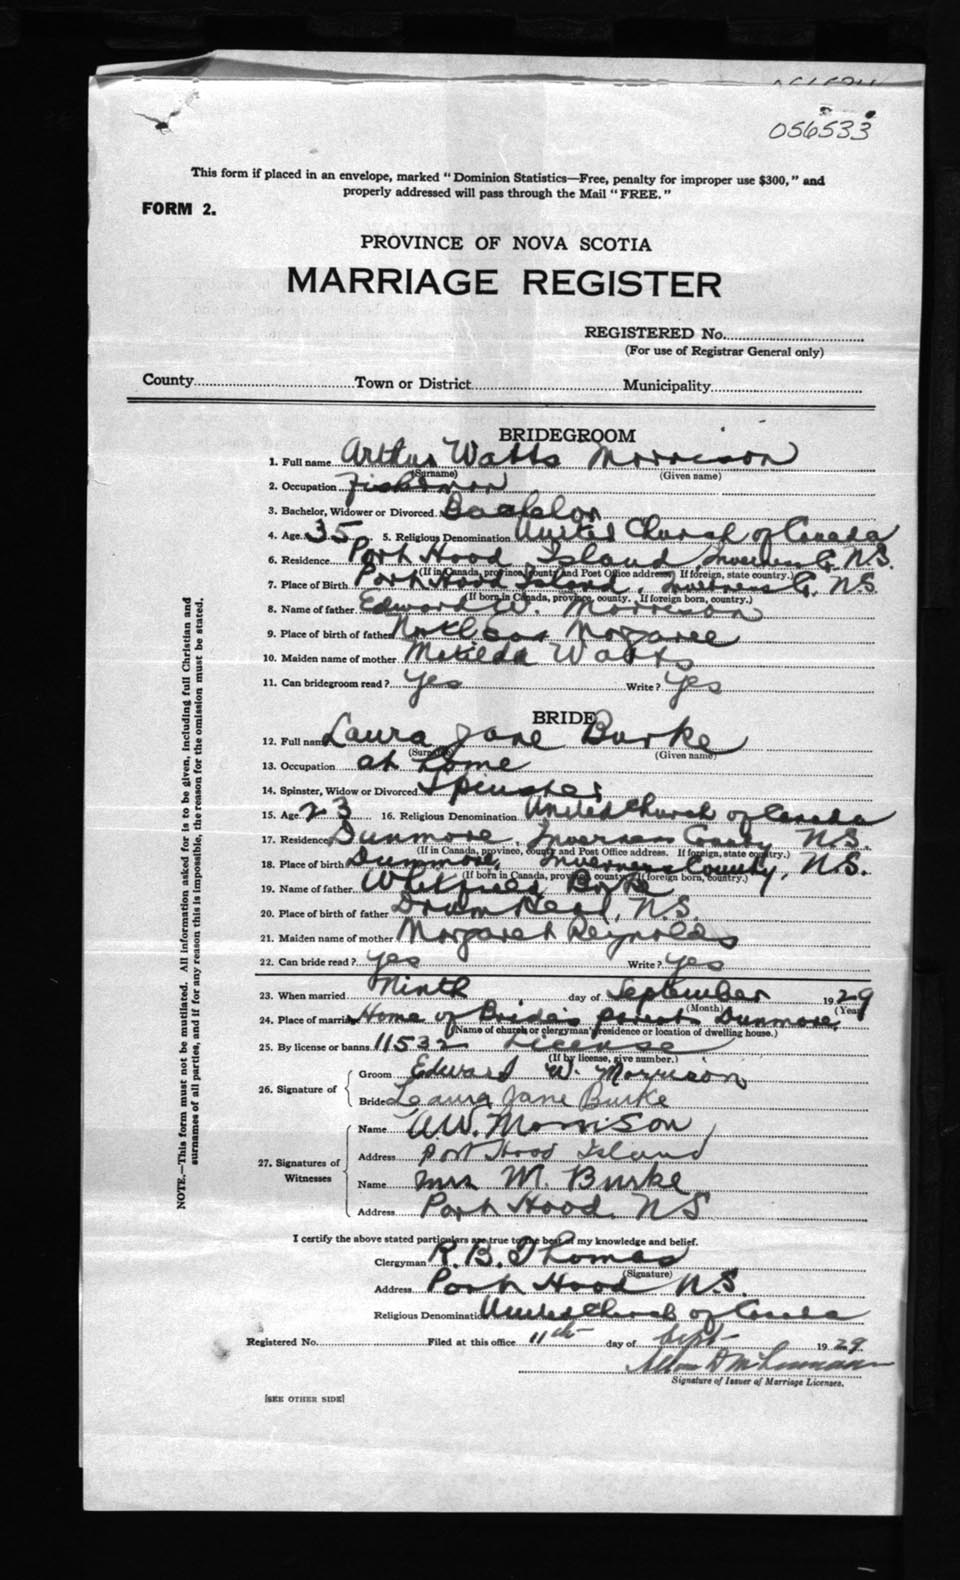 056533
This form if placed in an envelope, marked "Dominion Statistics—Free, penalty for improper use $300," and
properly addressed will pass through the Mail "FREE."
FORM 2.
PROVINCE OF NOVA SCOTIA
MARRIAGE REGISTER
REGISTERED No.
(For use of Registrar General only)
County Town or District Municipality
BRIDEGROOM
1. Full name Arthur Watts Morrison
(Surname) (Given name)
2. Occupation Fisherman
3. Bachelor, Widower or Divorced Bachelor
4. Age 35 5. Religious Denomination United Church of Canada
6. Residence Port Hood Island, Inverness Co. N.S.
(If in Canada, province, county and Post Office address. If foreign, state country.)
7. Place of Birth Port Hood Island, Inverness Co. N.S.
(If born in Canada, province, county. If foreign born, country.)
8. Name of father Edward W. Morrison
9. Place of birth of father North East Margaree
10. Maiden name of mother Matilda Watts
11. Can bridegroom read? Yes Write? Yes
BRIDE
12. Full name Laura Jane Burke
(Surname) (Given name)
13. Occupation at home
14. Spinster, Widow or Divorced Spinster
15. Age 23 16. Religious Denomination United Church of Canada
17. Residence Dunmore, Inverness County N.S.
(If in Canada, province, county and Post Office address. If foreign, state country.)
18. Place of birth Dunmore, Inverness County, N.S.
(If born in Canada, province, county. If foreign born, country.)
19. Name of father Burke
20. Place of birth of father Drum Head, N.S.
21. Maiden name of mother Margaret Reynolds
22. Can bride read? Yes Write? Yes
23. When married Ninth day of September 1929
(Month) (Year)
24. Place of marriage Home of Bride's parents Dunmore,
(Name of church or clergyman's residence or location of dwelling house.)
25. By license or banns 11532 License
(If by license, give number.)
26. Signature of
Groom Edward W. Morrison
Bride Leaura Jane Burke
27. Signatures of
Witnesses
Name A.W. Morrison
Address Port Hood Island
Name Mrs M. Burke
Address Port Hood N.S
I certify the above stated particulars are true to the best of my knowledge and belief.
Clergyman R. B. Thomas
(Signature)
Address Port Hood N.S.
Religious Denomination United Church of Canada
Registered No. Filed at this office 11th day of Sept 1929.
Signature of Issuer of Marriage Licenses.
[SEE OTHER SIDE]
NOTE.—This form must not be mutilated. All information asked for is to be given, including full Christian and
surnames of all parties, and if for any reason this is impossible, the reason for the omission must be stated.